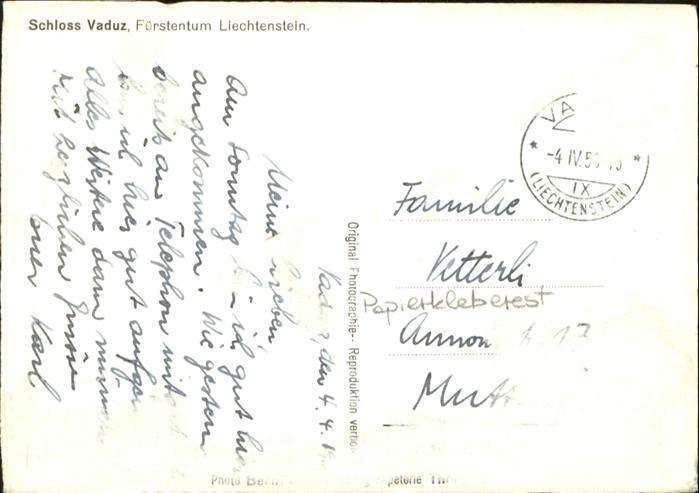 Schloss Vaduz, Fürstentum Liechtenstein.
Vaduz, den 4. 4. 19
Meine Lieben
Am Sonntag bin ich gut hier
angekommen. Wie gestern
bereits am Telephon mit
ich hier gut aufge
Alles Weitere dann
Mit herzlichen Grüssen
Euer Karl
Original Photographie-- Reproduktion verbo
VA
-4.IV.5
IX
(LIECHTENSTEIN)
Familie
Vetterli
Papierkleberest
Photo